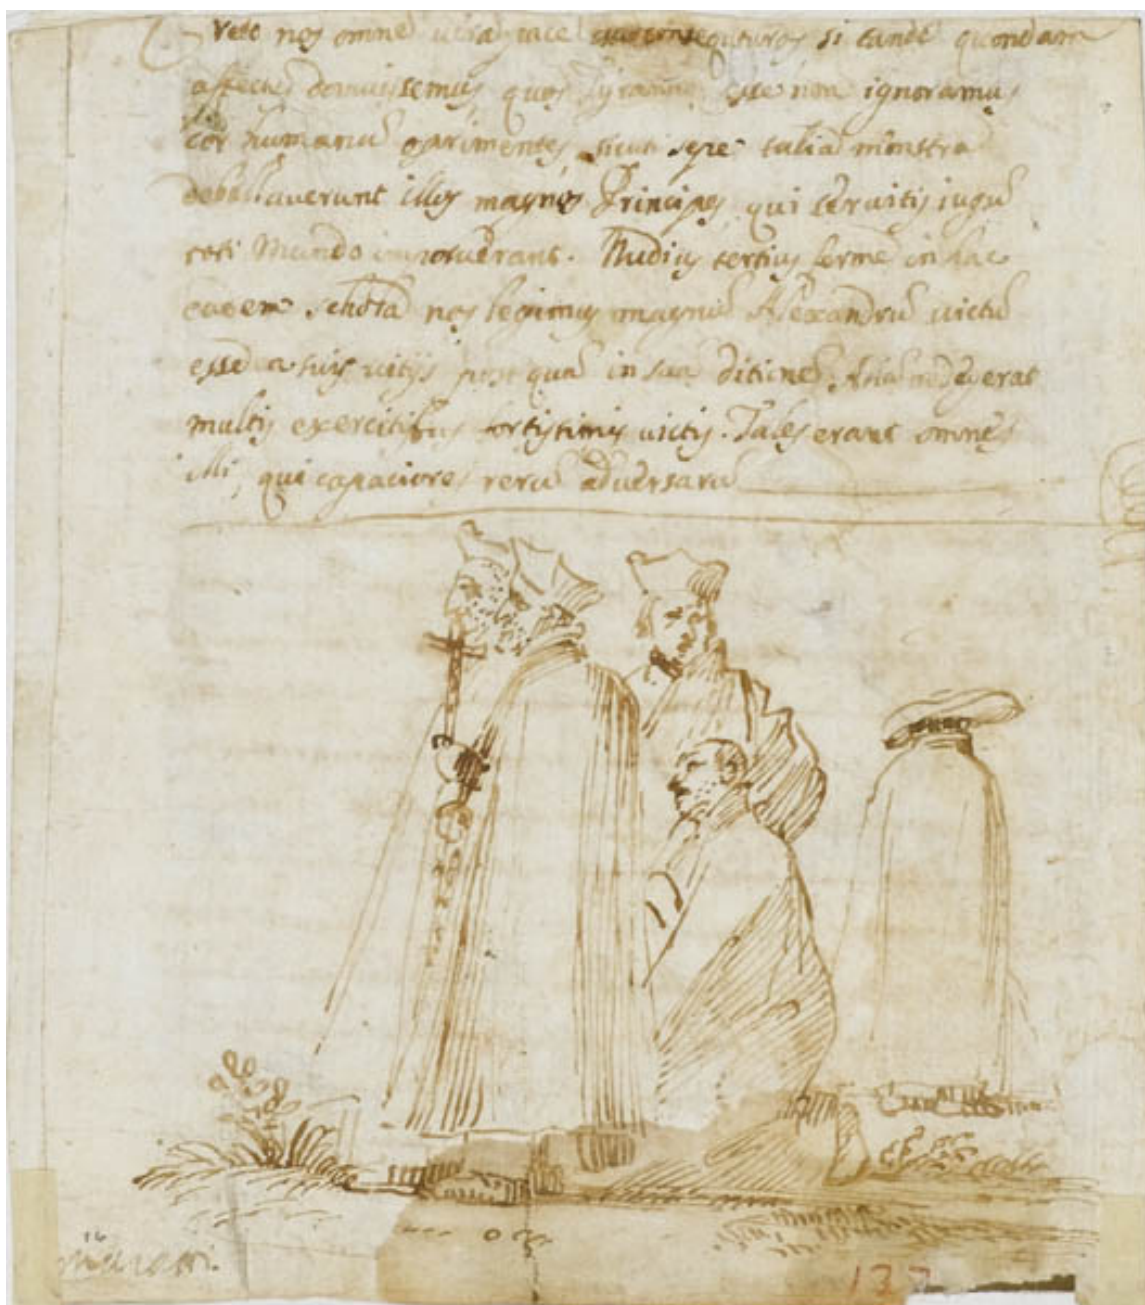 nos omnes si quondam
quos Tyrannos esse non ignoramus
cor humanū opprimentes, sicuti sepe talia monstra
debellaverunt illi magni Principes qui servitis iugū
toti Mundo imposuerant. Nudius tertius ferme in hac
eadem schola nos legimus magnū Alexandrū victū
esse a suis vitijs post quā in sua ditione Asiā redegerat
multis exercitibus fortissimis victis. Tales erant omnes
illi, qui capaciores rerū adversarū
16
137